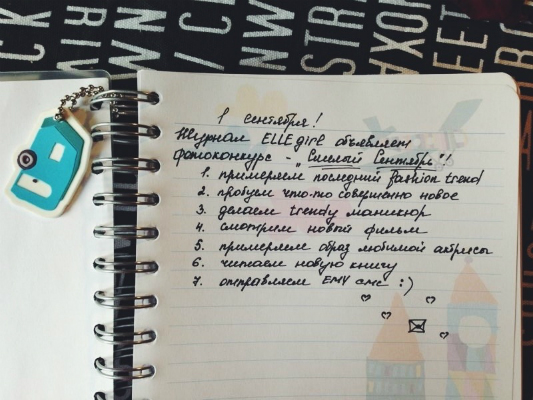 1 сентября!
Журнал ELLE girl объявляет
фотоконкурс - „Смелый Сентябрь"!
1. примеряем последний fashion trend
2. пробуем что-то совершенно новое
3. делаем trendy маникюр
4. смотрим новый фильм
5. примеряем образ любимой актрисы
6. читаем новую книгу
7. отправляем ЕМУ смс :)